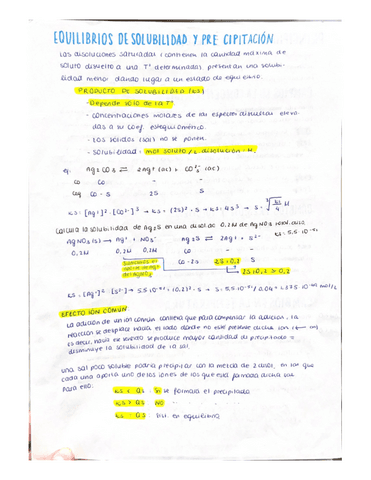 EQUILIBRIOS DE SOLUBILIDAD Y PRECIPITACIÓN
Las disoluciones saturadas (contienen la cantidad máxima de
soluto disuelto a una Tª determinada) presentan una solubi-
lidad menor dando lugar a un estado de equilibrio.
PRODUCTO DE SOLUBILIDAD (KS)
- Depende solo de la Tª
- concentraciones molares de las especies disueltas eleva-
das a su coef. estequiométrico.
- Los sólidos (sal) no se ponen.
- solubilidad = mol soluto / L disolución = M.
ej: Ag2CO3 ⇌ 2Ag+ (ac) + CO3 2- (ac)
Co Co - -
Ceq Co - S 2S S
KS = [Ag+]2 · [CO3 2-] → KS = (2S)2 · S → KS = 4S3 → S = ∛KS/4 M
Calcula la solubilidad de Ag2S en una disoluc. 0,2M de AgNO3
KS = 5.5·10
AgNO3 (s) → Ag+ + NO3- Ag2S ⇌ 2Ag+ + S2-
0,2M 0,2M 0,2M Co - -
Co - S 2S + 0,2 S
2S + 0,2 ≈ 0,2
KS = [Ag+]2 · [S2-] → 5.5·10 = (0.2)2 · S → S = 5.5·10 / 0.04 =
EFECTO IÓN COMÚN:
La adición de un ión común conlleva que para compensar la adición, la
reacción se desplace hacia el lado donde no esté presente dicho ión
es decir, hacia ese sentido se produce mayor cantidad de precipitado =
disminuye la solubilidad de la sal.
una sal poco soluble podría precipitar con la mezcla de 2 disol. en las que
cada una aporta uno de los iones de los que está formada dicha sal.
Para ello:
KS < QS SI se formará el precipitado
KS > QS NO
KS = QS sist. en equilibrio